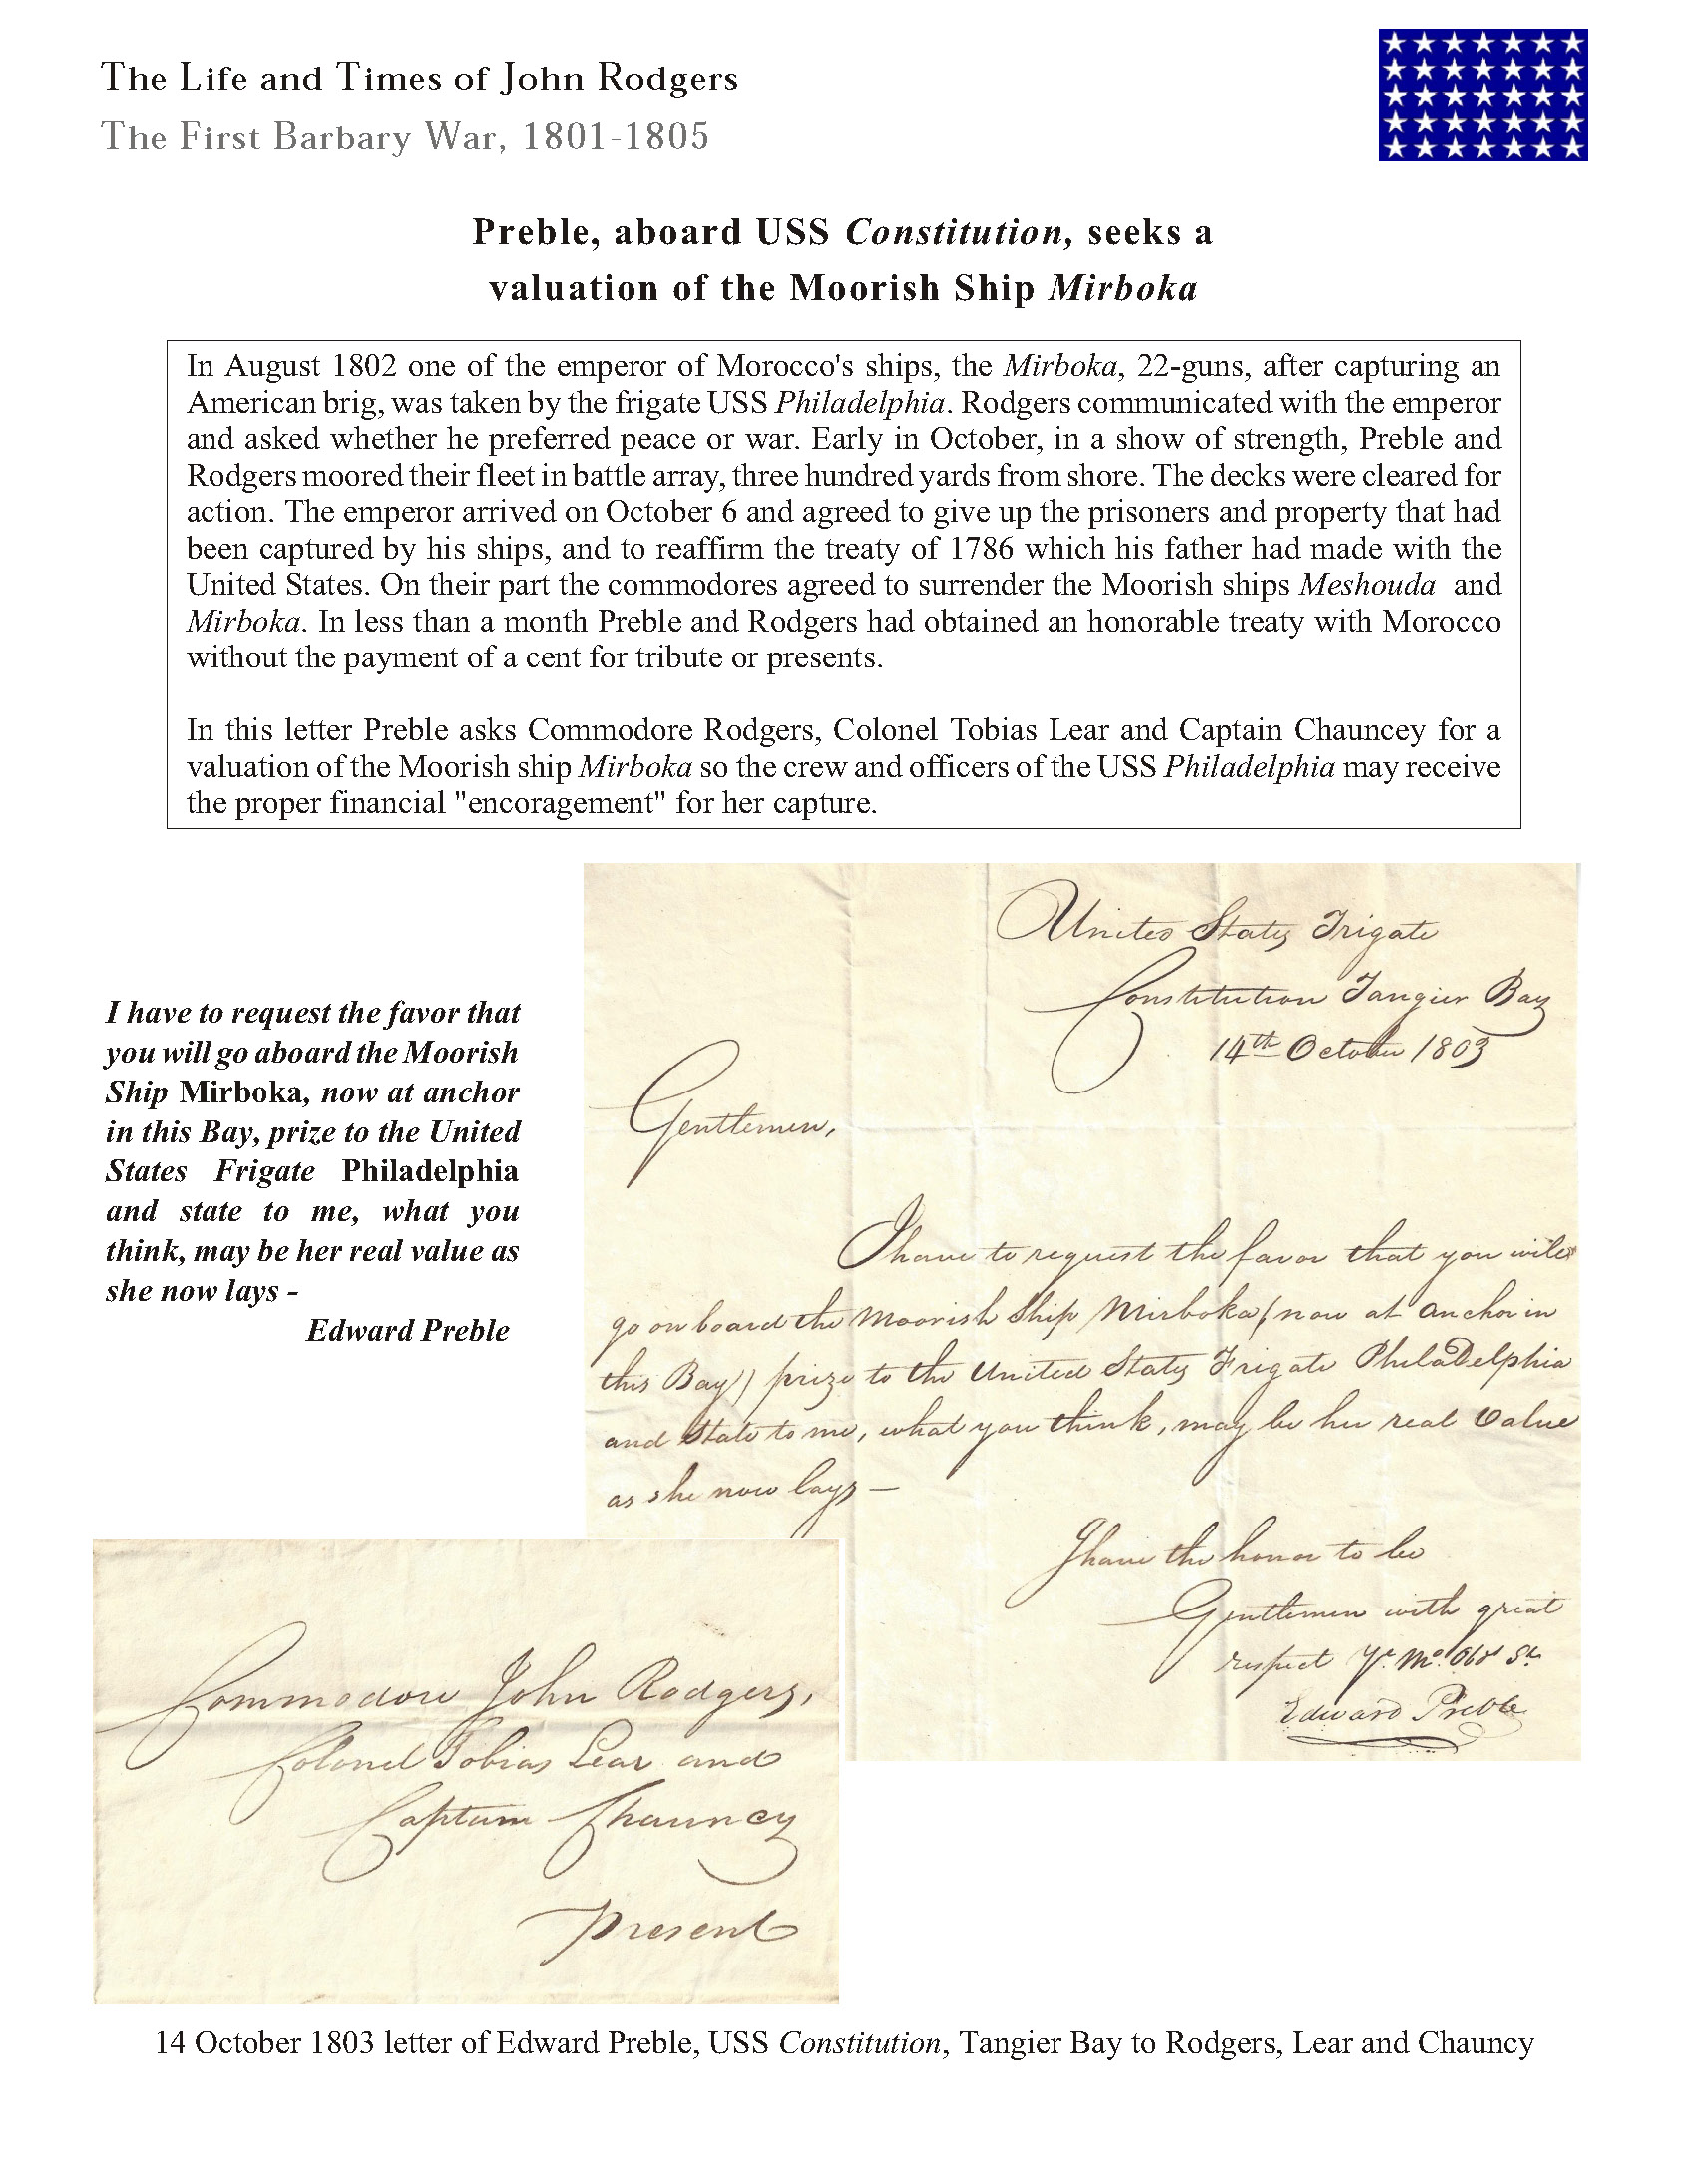 The Life and Times of John Rodgers
The First Barbary War, 1801-1805
Preble, aboard USS Constitution, seeks a
valuation of the Moorish Ship Mirboka
In August 1802 one of the emperor of Morocco's ships, the Mirboka, 22-guns, after capturing an
American brig, was taken by the frigate USS Philadelphia. Rodgers communicated with the emperor
and asked whether he preferred peace or war. Early in October, in a show of strength, Preble and
Rodgers moored their fleet in battle array, three hundred yards from shore. The decks were cleared for
action. The emperor arrived on October 6 and agreed to give up the prisoners and property that had
been captured by his ships, and to reaffirm the treaty of 1786 which his father had made with the
United States. On their part the commodores agreed to surrender the Moorish ships Meshouda and
Mirboka. In less than a month Preble and Rodgers had obtained an honorable treaty with Morocco
without the payment of a cent for tribute or presents.
In this letter Preble asks Commodore Rodgers, Colonel Tobias Lear and Captain Chauncey for a
valuation of the Moorish ship Mirboka so the crew and officers of the USS Philadelphia may receive
the proper financial "encoragement" for her capture.
I have to request the favor that
you will go aboard the Moorish
Ship Mirboka, now at anchor
in this Bay, prize to the United
States Frigate Philadelphia
and state to me, what you
think, may be her real value as
she now lays -
Edward Preble
United States Frigate
Constitution Tangier Bay
14th October 1803
Gentlemen,
I have to request the favor that you will
go on board the Moorish Ship Mirboka (now at anchor in
this Bay) prize to the United States Frigate Philadelphia
and State to me, what you think, may be her real Value
as she now lays —
I have the honor to be
Gentlemen with great
respect Yr. Mo. Obt St.
Edward Preble
Commodore John Rodgers,
Colonel Tobias Lear and
Captain Chauncy
Present
14 October 1803 letter of Edward Preble, USS Constitution, Tangier Bay to Rodgers, Lear and Chauncy